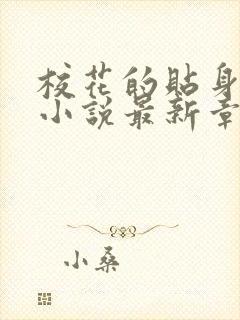 校花的貼身
小說最新章
小桑